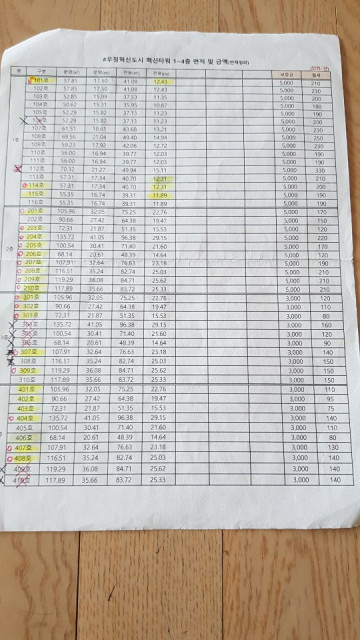 #우정혁신도시 혁신타워 1~4층 면적 및 금액
층 구분
101호 57.85 17.50 41.09 12.43 5,000 210
102호 57.85 17.50 41.09 12.43 5,000 230
103호 52.85 15.99 37.53 5,000 200
104호 50.62 15.31 35.95 5,000 180
105호 52.29 15.82 37.13 11.23 5,000 190
106호 52.29 15.82 37.13 11.23 5,000 190
107호 61.51 43.68 13.21 5,000 230
108호 69.56 21.04 49.40 14.94 5,000 250
109호 59.23 17.92 42.06 12.72 5,000 230
110호 56.00 16.94 39.77 12.03 5,000 190
111호 56.00 16.94 39.77 12.03 5,000 190
112호 70.32 21.27 49.94 15.11 5,000 330
113호 57.31 17.34 40.70 12.31 5,000 210
114호 57.31 17.34 40.70 12.31 5,000 200
115호 55.35 16.74 39.31 11.89 5,000 190
116호 55.35 16.74 39.31 11.89 5,000 190
201호 105.96 32.05 75.25 22.76 5,000 170
202호 90.66 27.42 64.38 19.47 5,000 150
203호 72.31 21.87 51.35 15.53 5,000 120
204호 135.72 41.05 96.38 29.15 5,000 220
205호 100.54 30.41 71.40 21.60 5,000 170
206호 68.14 20.61 48.39 14.64 5,000 120
207호 107.91 32.64 76.63 23.18 5,000 190
208호 116.51 35.24 82.74 25.03 5,000 210
209호 119.29 36.08 84.71 25.62 5,000 210
210호 117.89 35.66 83.72 25.33 5,000 210
301호 105.96 32.05 75.25 22.76 3,000 120
302호 90.66 27.42 64.38 19.47 3,000 110
303호 72.31 21.87 51.35 15.53 3,000 80
304호 135.72 41.05 96.38 29.15 3,000 160
305호 100.54 30.41 71.40 21.60 3,000 120
306호 68.14 20.61 48.39 14.64 3,000 90
307호 107.91 32.64 76.63 23.18 3,000 140
308호 116.51 35.24 82.74 25.03 3,000 150
309호 119.29 36.08 84.71 25.62 3,000 150
310호 117.89 35.66 83.72 25.33 3,000 150
401호 105.96 32.05 75.25 22.76 3,000 110
402호 90.66 27.42 64.38 19.47 3,000 95
403호 72.31 21.87 51.35 15.53 3,000 75
404호 135.72 41.05 96.38 29.15 3,000 140
405호 100.54 30.41 71.40 21.60 3,000 110
406호 68.14 20.61 48.39 14.64 3,000 80
407호 107.91 32.64 76.63 23.18 3,000 130
408호 116.51 35.24 82.74 25.03 3,000 140
409호 119.29 36.08 84.71 25.62 3,000 140
410호 117.89 35.66 83.72 25.33 3,000 140